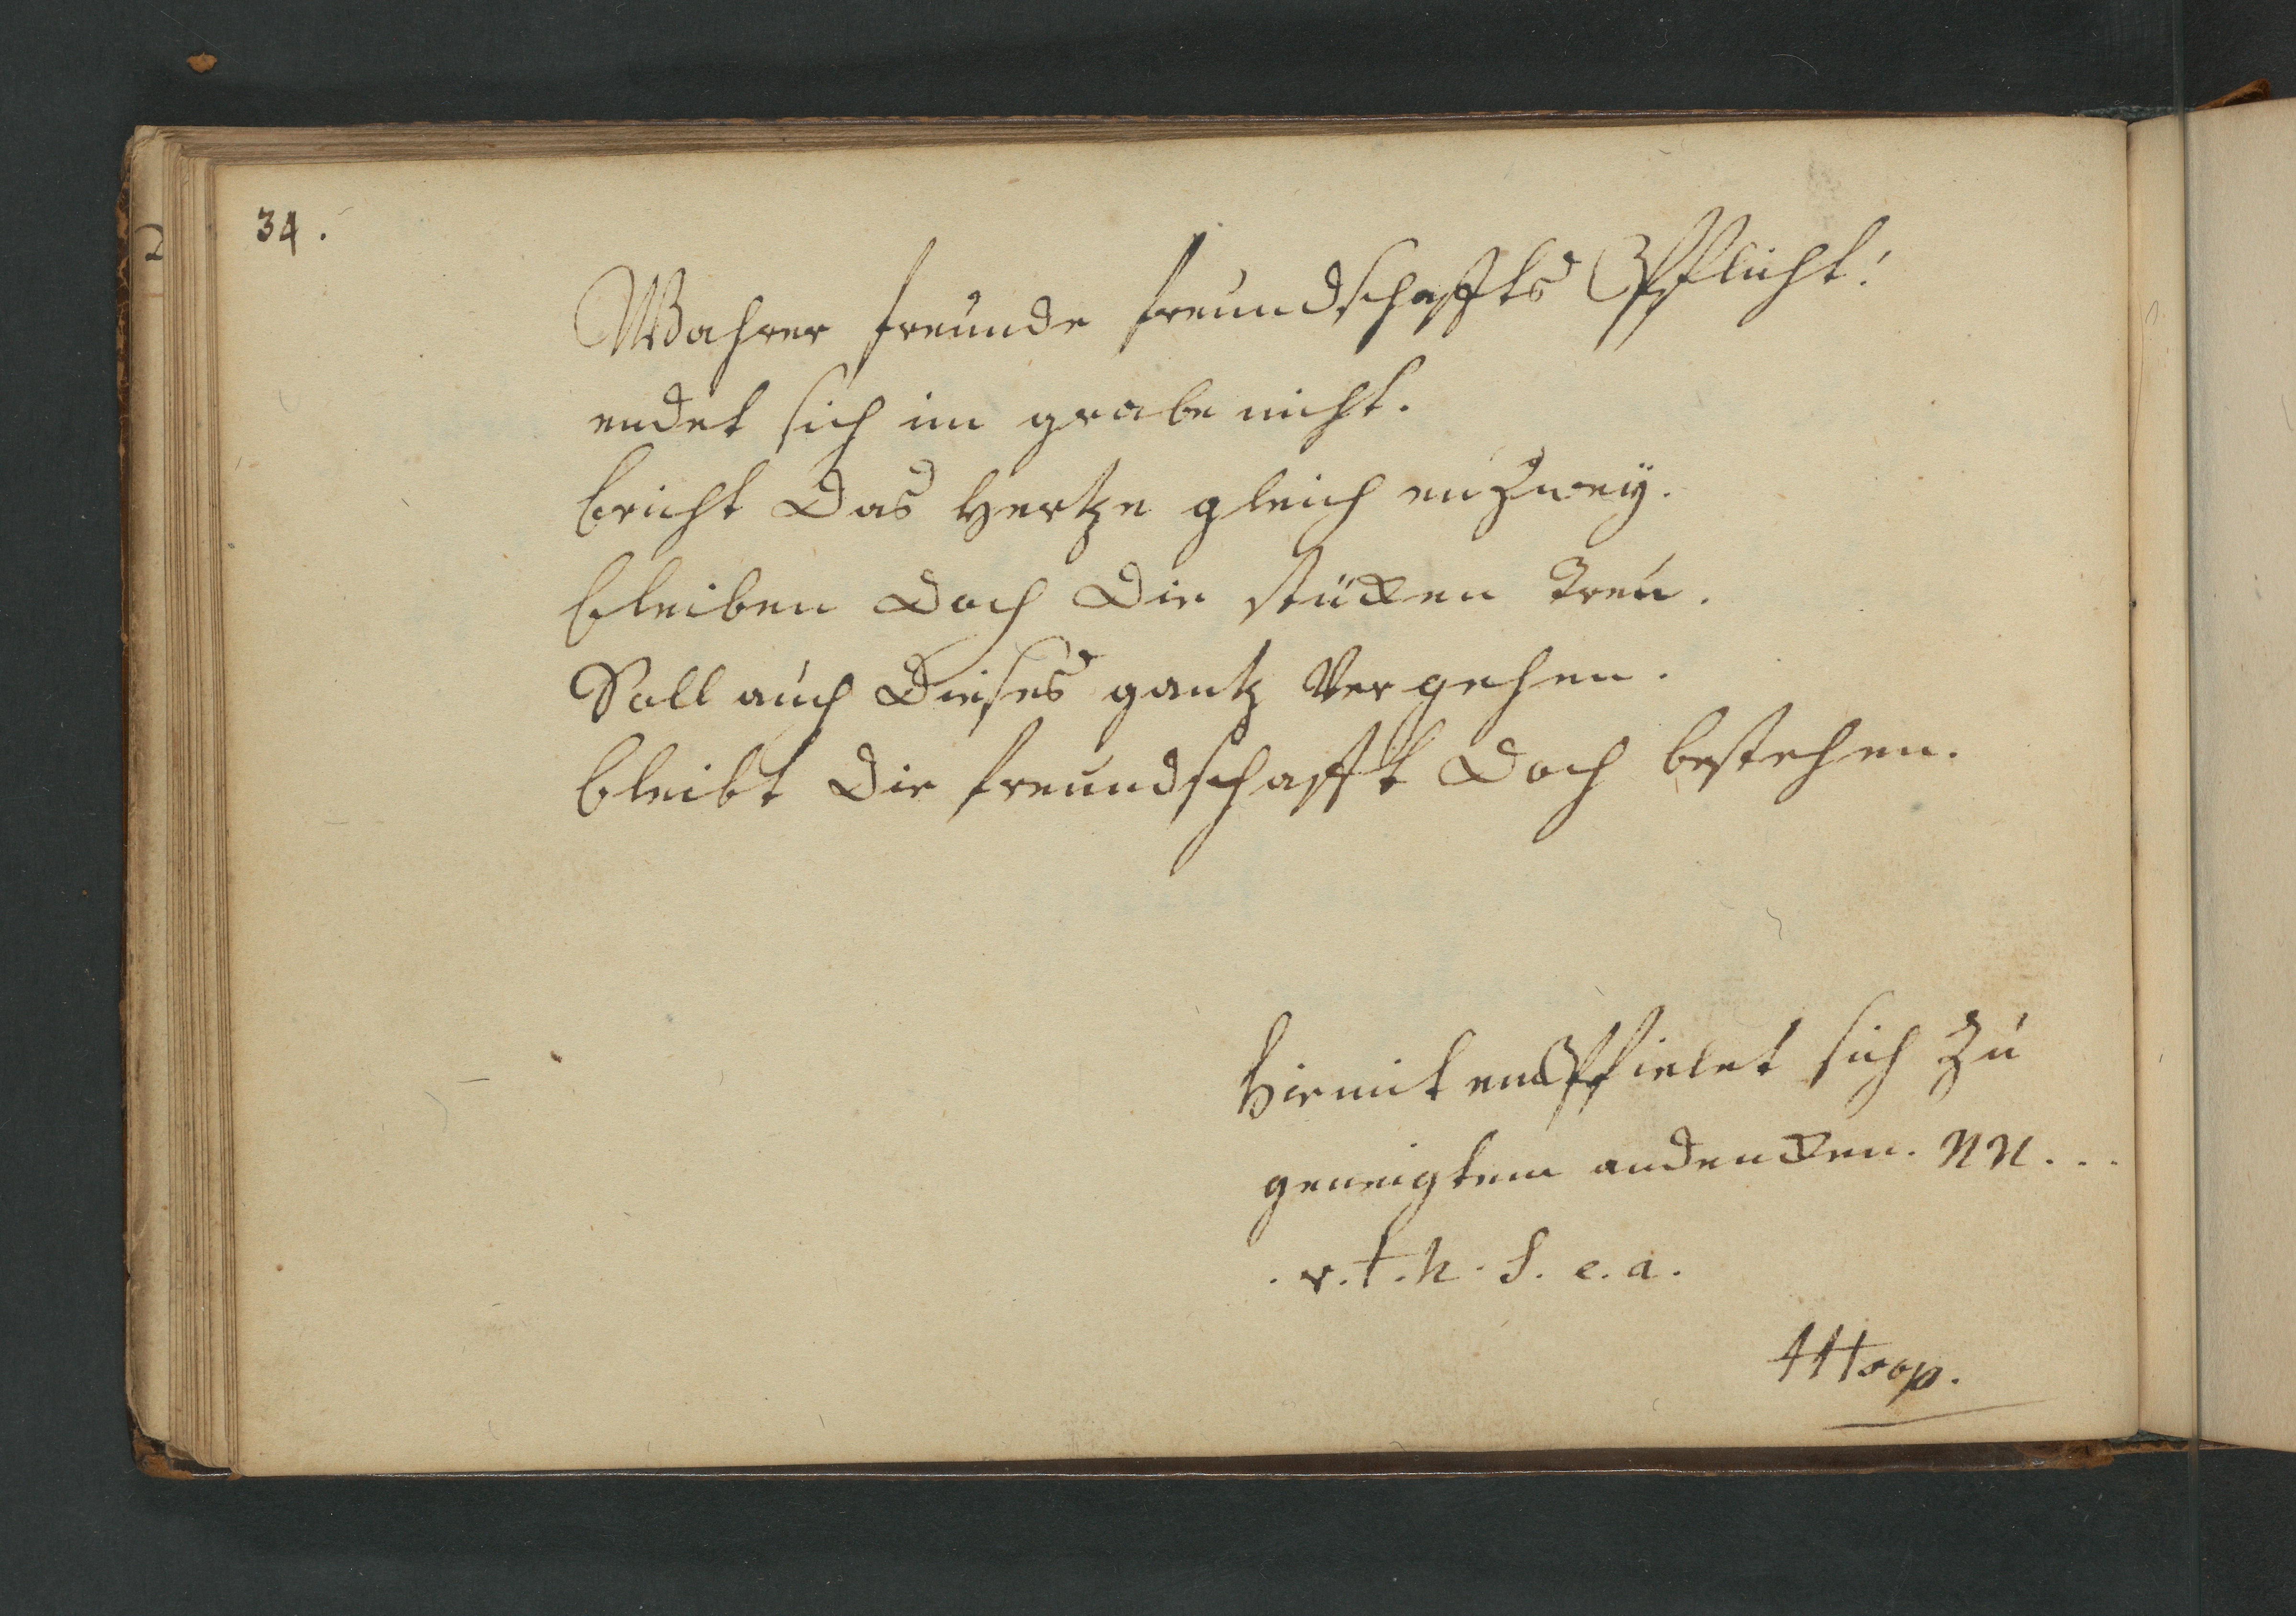 34.
Wahrer freunde freundschaffts Pfflicht!
endet sich im grabe nicht.
bricht Das Hertze gleich enzwey.
bleiben Doch Die stücken Treu.
Soll auch Dieses gantz Vergehen.
bleibt Die freundschafft Doch bestehen.
Hirmit empffielet sich zu
geneigtem andencken. NN...
. v. t. h. S. e. a.